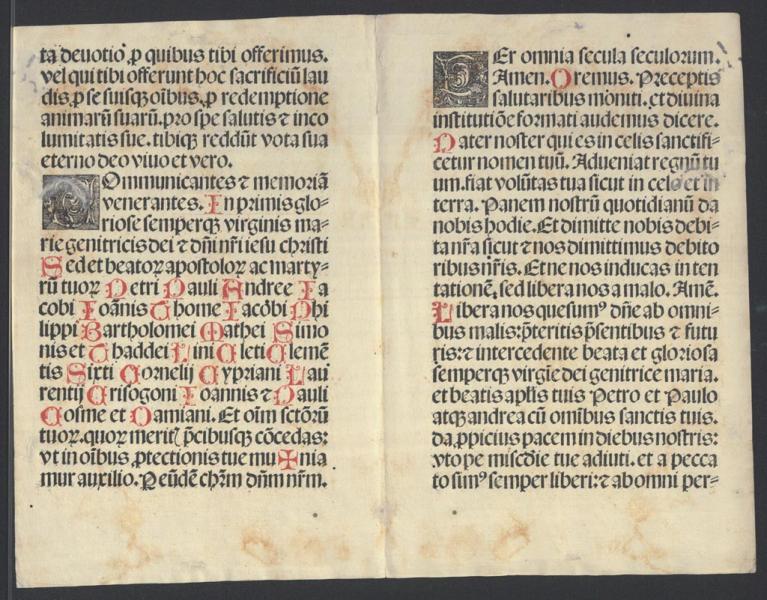 ta deuotio᷈ ꝓ quibus tibi offerimus.
vel qui tibi offerunt hoc sacrificiū lau
dis ꝓ se suisqꝫ oı̄bus ꝓ redemptione
animarū suarū. pro spe salutis ⁊ inco
lumitatis sue. tibiqꝫ reddūt vota sua
eterno deo viuo et vero.
Communicantes ⁊ memoriā
venerantes. In primis glo⸗
riose semperqꝫ virginis ma⸗
rie genitricis dei ⁊ dn̄i nr̄i iesu christi
Sed et beatoꝝ apostoloꝝ ac marty⸗
rū tuoꝝ Petri Pauli Andree Ja
cobi Joānis Thome Jacōbi Phi
lippi Bartholomei Mathei Simo
nis et Thaddei Lini Cleti Clemē
tis Sixti Cornelij Cypriani Lau
rentij Crisogoni Joannis ⁊ Pauli
Cosme et Damiani. Et oı̄m sctōrū
tuoꝝ. quoꝝ meritꝭ p̄cibusqꝫ cōcedas:
vt in oı̄bus ꝓtectionis tue mu✠nia
mur auxilio. Per eūdē chr̄m dn̄m nr̄m.
PEr omnia secula seculorum.
Amen. Oremus. Preceptis
salutaribus moniti. et diuina
institutiōe formati audemus dicere.
Pater noster qui es in celis sanctifi⸗
cetur nomen tuū. Adueniat regnū tu
um. fiat volūtas tua sicut in celo et in
terra. Panem nostrū quotidianū da
nobis hodie. Et dimitte nobis debi⸗
ta nr̄a sicut ⁊ nos dimittimus debito
ribus nr̄is. Et ne nos inducas in ten
tationē. sed libera nos a malo. Amē.
Libera nos quesumꝰ dn̄e ab omni⸗
bus malis: p̄teritis p̄sentibus ⁊ futu
ris: ⁊ intercedente beata et gloriosa
semperqꝫ virgīe dei genitrice maria.
et beatis apl̄is tuis Petro et Paulo
atqꝫ andrea cū omībus sanctis tuis.
da ꝓpicius pacem in diebus nostris:
vt ope miscd̄ie tue adiuti. et a pecca
to simꝰ semper liberi: ⁊ ab omni per⸗